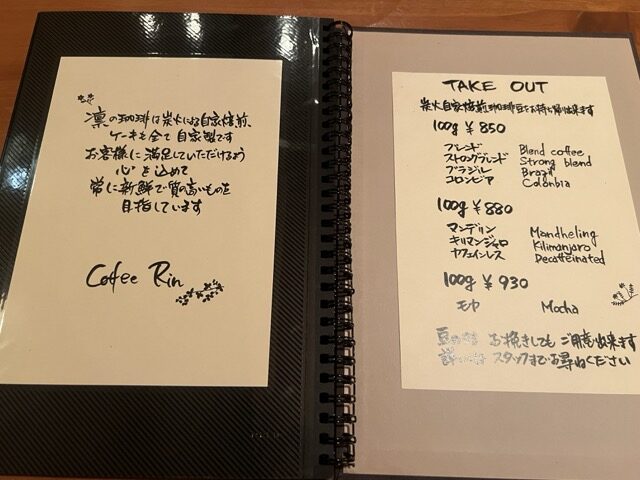 凛の珈琲は炭火による自家焙煎、
ケーキも全て自家製です
お客様に満足していただけるよう
心を込めて
常に新鮮で質の高いものを
目指しています
Coffee Rin
TAKE OUT
炭火自家焙煎珈琲豆をお持ち帰り出来ます
100g ¥850
ブレンド Blend coffee
ストロングブレンド Strong blend
ブラジル Brazil
コロンビア Colonbia
100g ¥880
マンデリン Mandheling
キリマンジャロ Kilimanjaro
カフェインレス Decaffeinated
100g ¥930
モカ Mocha
豆のまま お挽きしても ご用意出来ます
詳しくは スタッフまでお尋ねください